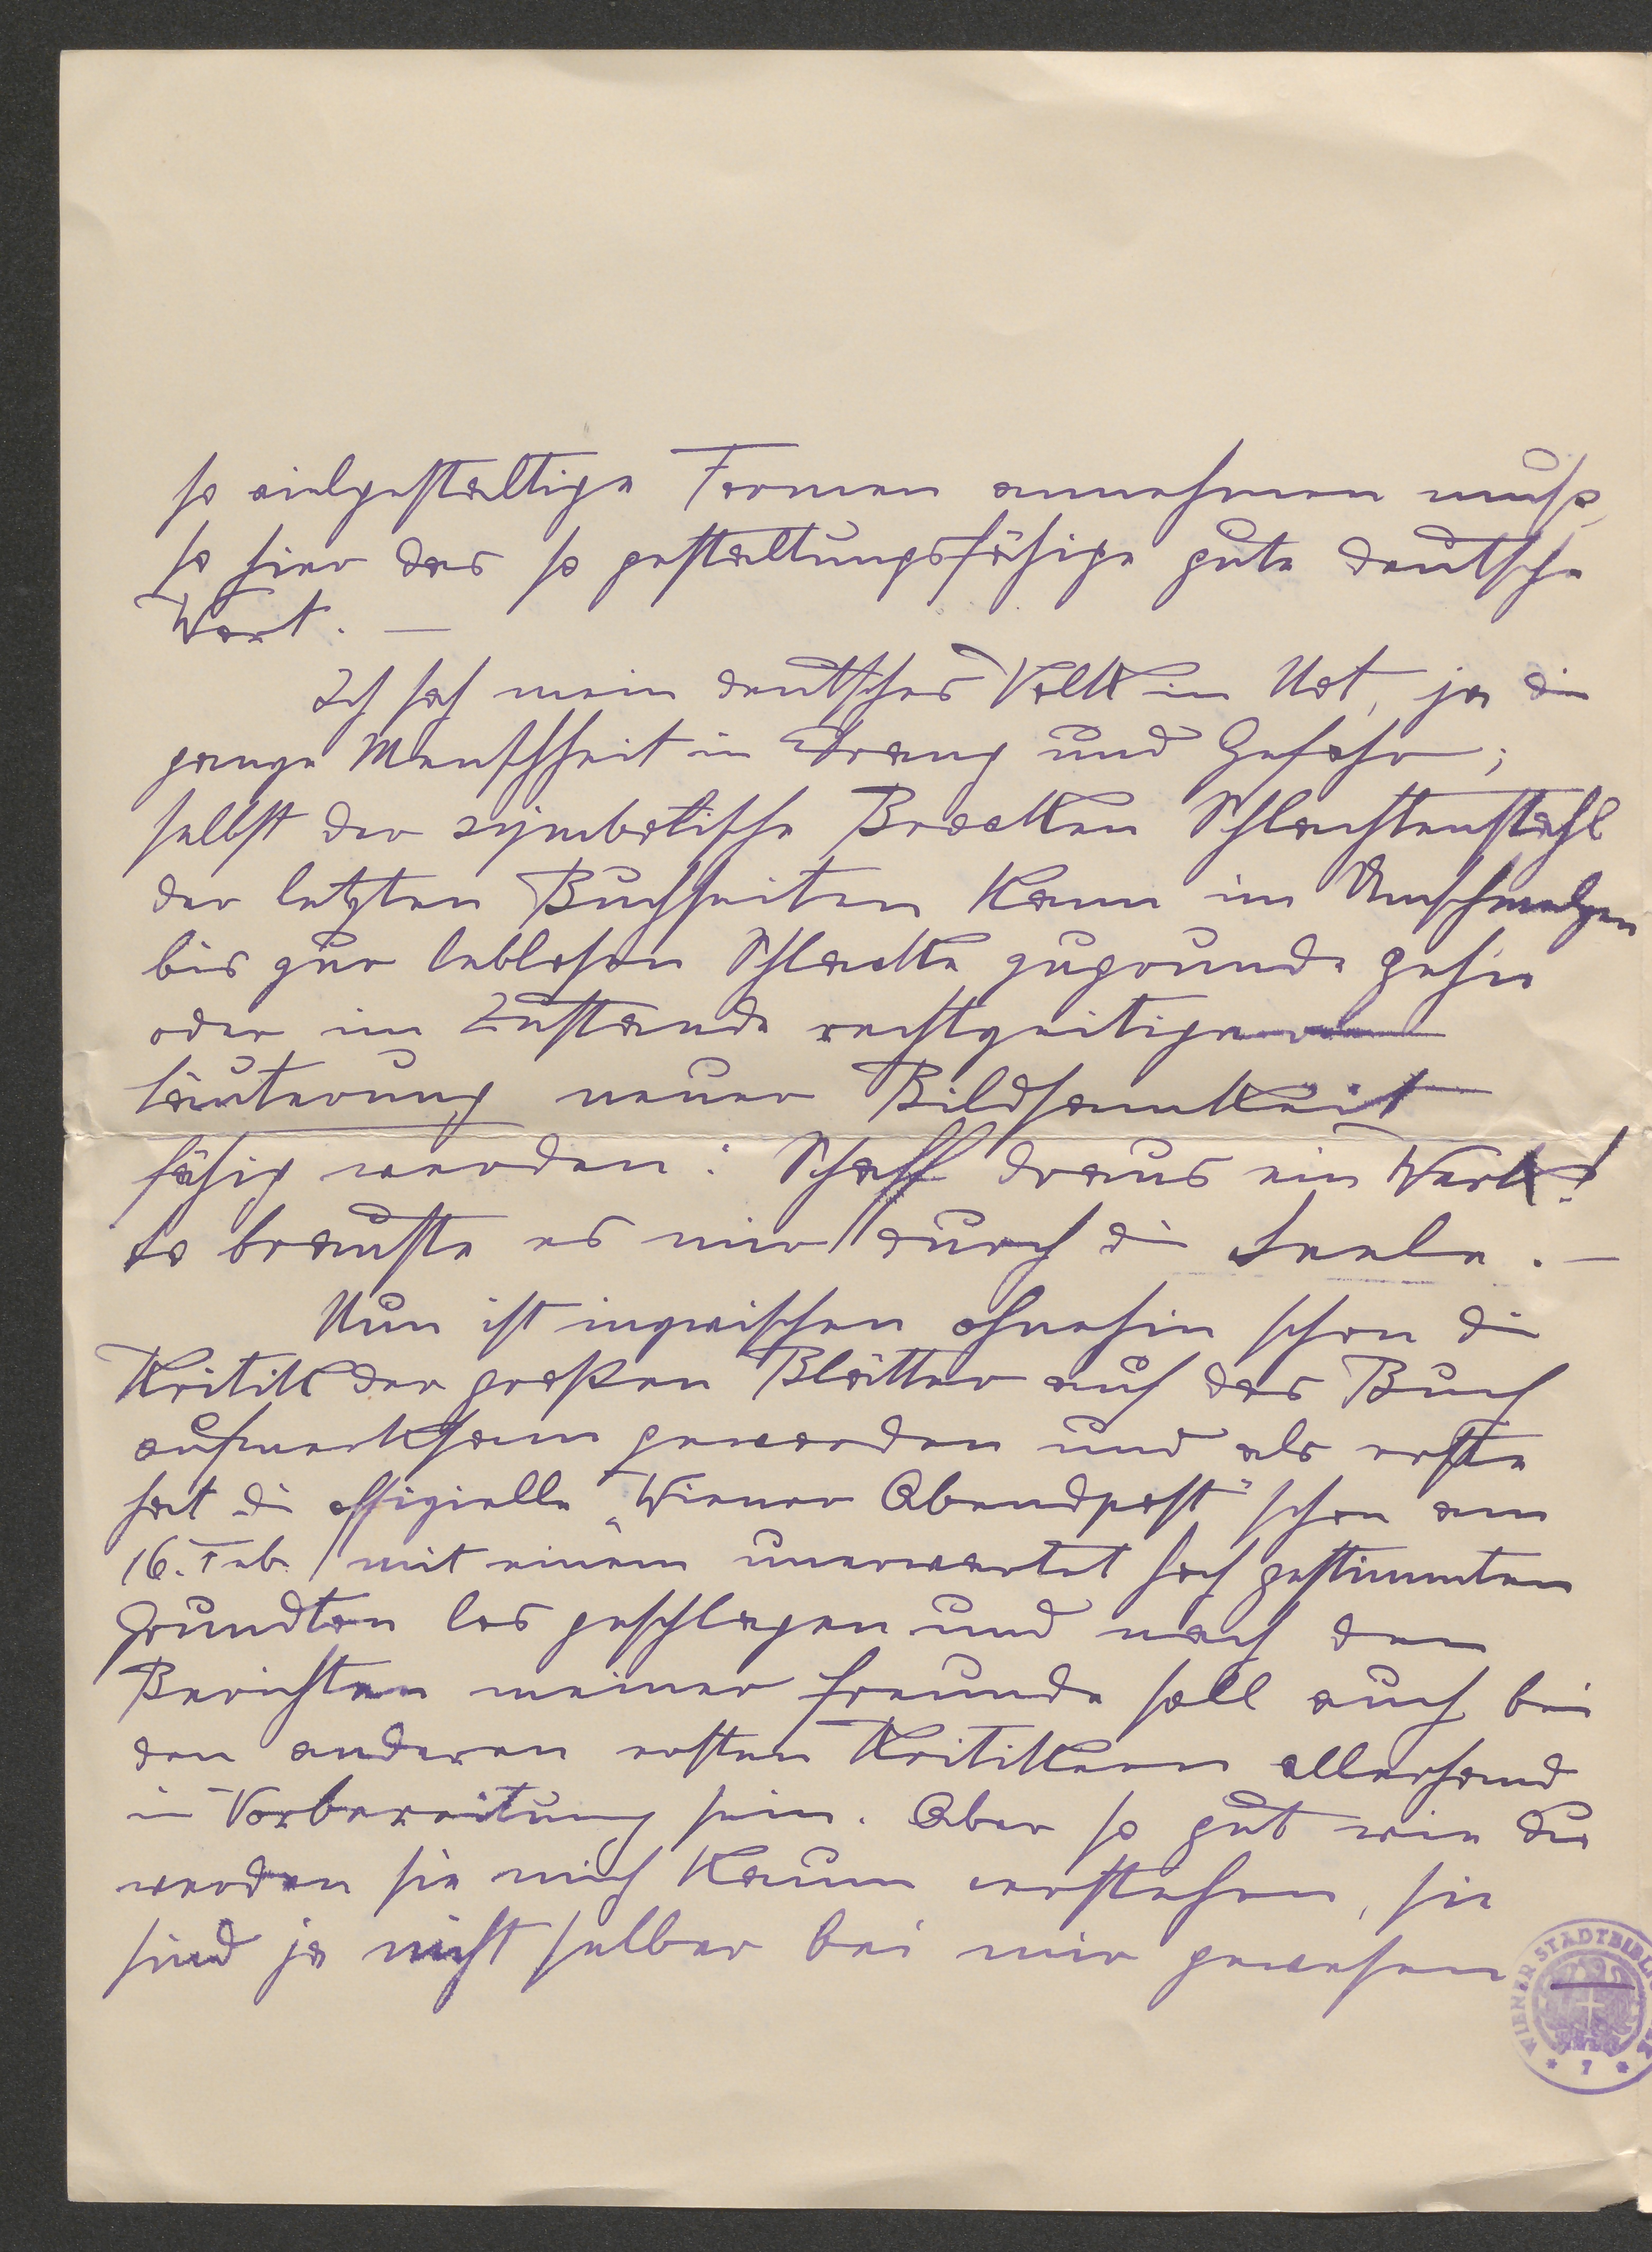 so vielgestaltige Formen annehmen muß,
so hier das so gestaltungsfähige gute deutsche
Wort. —
Ich sah mein deutsches Volk in Not, ja die
ganze Menschheit in Drang und Gefahr;
selbst der symbolische Brocken Schlachtenstahl
der letzten Buchseiten kann im Umschmelzen
bis zur leblosen Schlacke zugrunde gehn
oder im Zustande rechtzeitiger
Läuterung neuer Bildsamkeit
fähig werden: Schaff draus ein Werk!
so brauste es mir durch die Seele. —
Nun ist inzwischen ohnehin schon die
Kritik der großen Blätter auf das Buch
aufmerksam geworden und als erste
hat die offizielle „Wiener Abendpost" schon am
16. Feb. mit einem unerwartet hoch gestimmten
Grundton los geschlagen und nach den
Berichten meiner Freunde soll auch bei
den anderen ersten Kritikern allerhand
in Vorbereitung sein. Aber so gut wie Du
werden sie mich kaum verstehen, sie
sind ja nicht selber bei mir gewesen
WIENER STADTBIBL
* 7 *